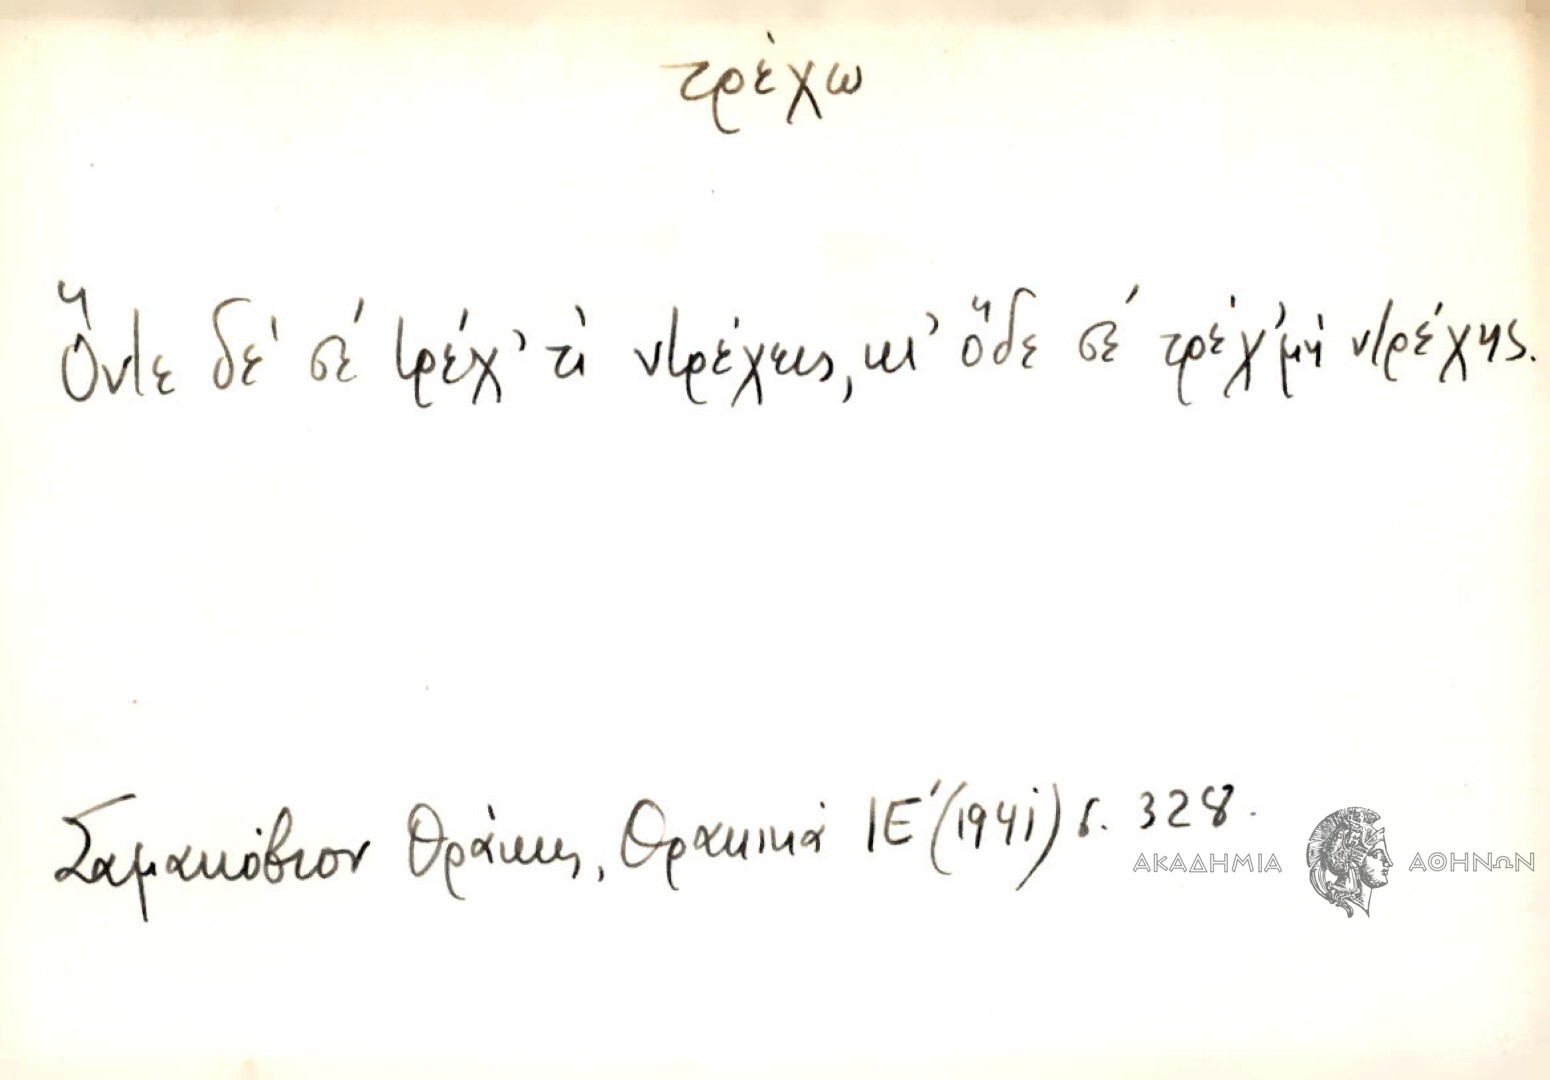 τρέχω
Ὅντε δέ σέ τρέχ' τὶ ντρέχεις, κι' ὅδε σέ τρέχ' μὴ ντρέχῃς.
Σαμακόβιον Θράκης, Θρακικά ΙΕ' (1941) σ. 328.
ΑΚΑΔΗΜΙΑ ΑΘΗΝΩΝ